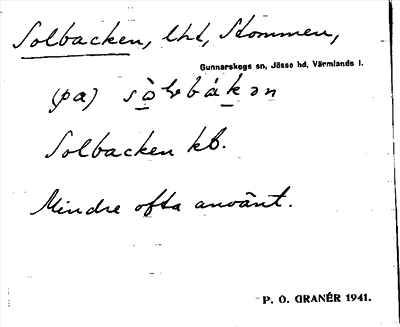 Solbacken, lht, Stommen,
Gunnarskogs sn, Jösse hd, Värmlands l.
(på) sòlbákən
Solbacken kb.
Mindre ofta använt.
P. O. GRANÉR 1941.